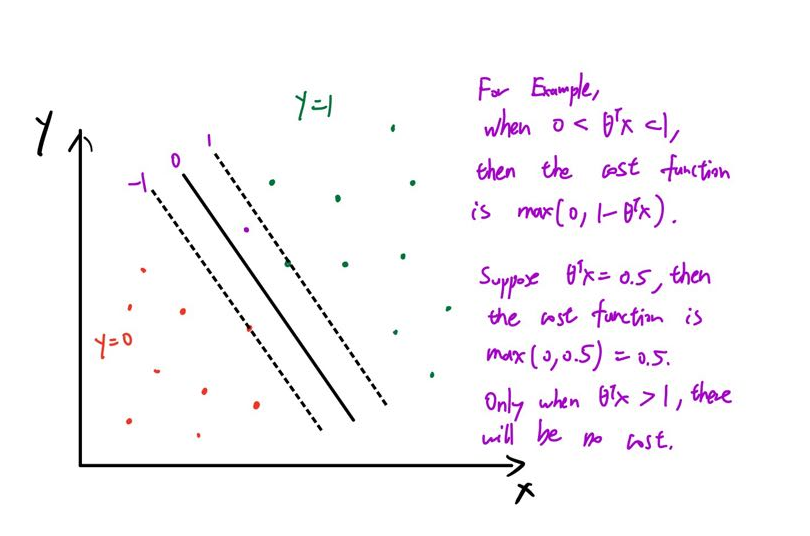 Y
-1
0
1
y=1
y=0
x
For Example,
when 0 < θᵀx <1,
then the cost function
is max(0, 1-θᵀx).
Suppose θᵀx = 0.5, then
the cost function is
max(0,0.5) = 0.5.
Only when θᵀx >1, there
will be no cost.